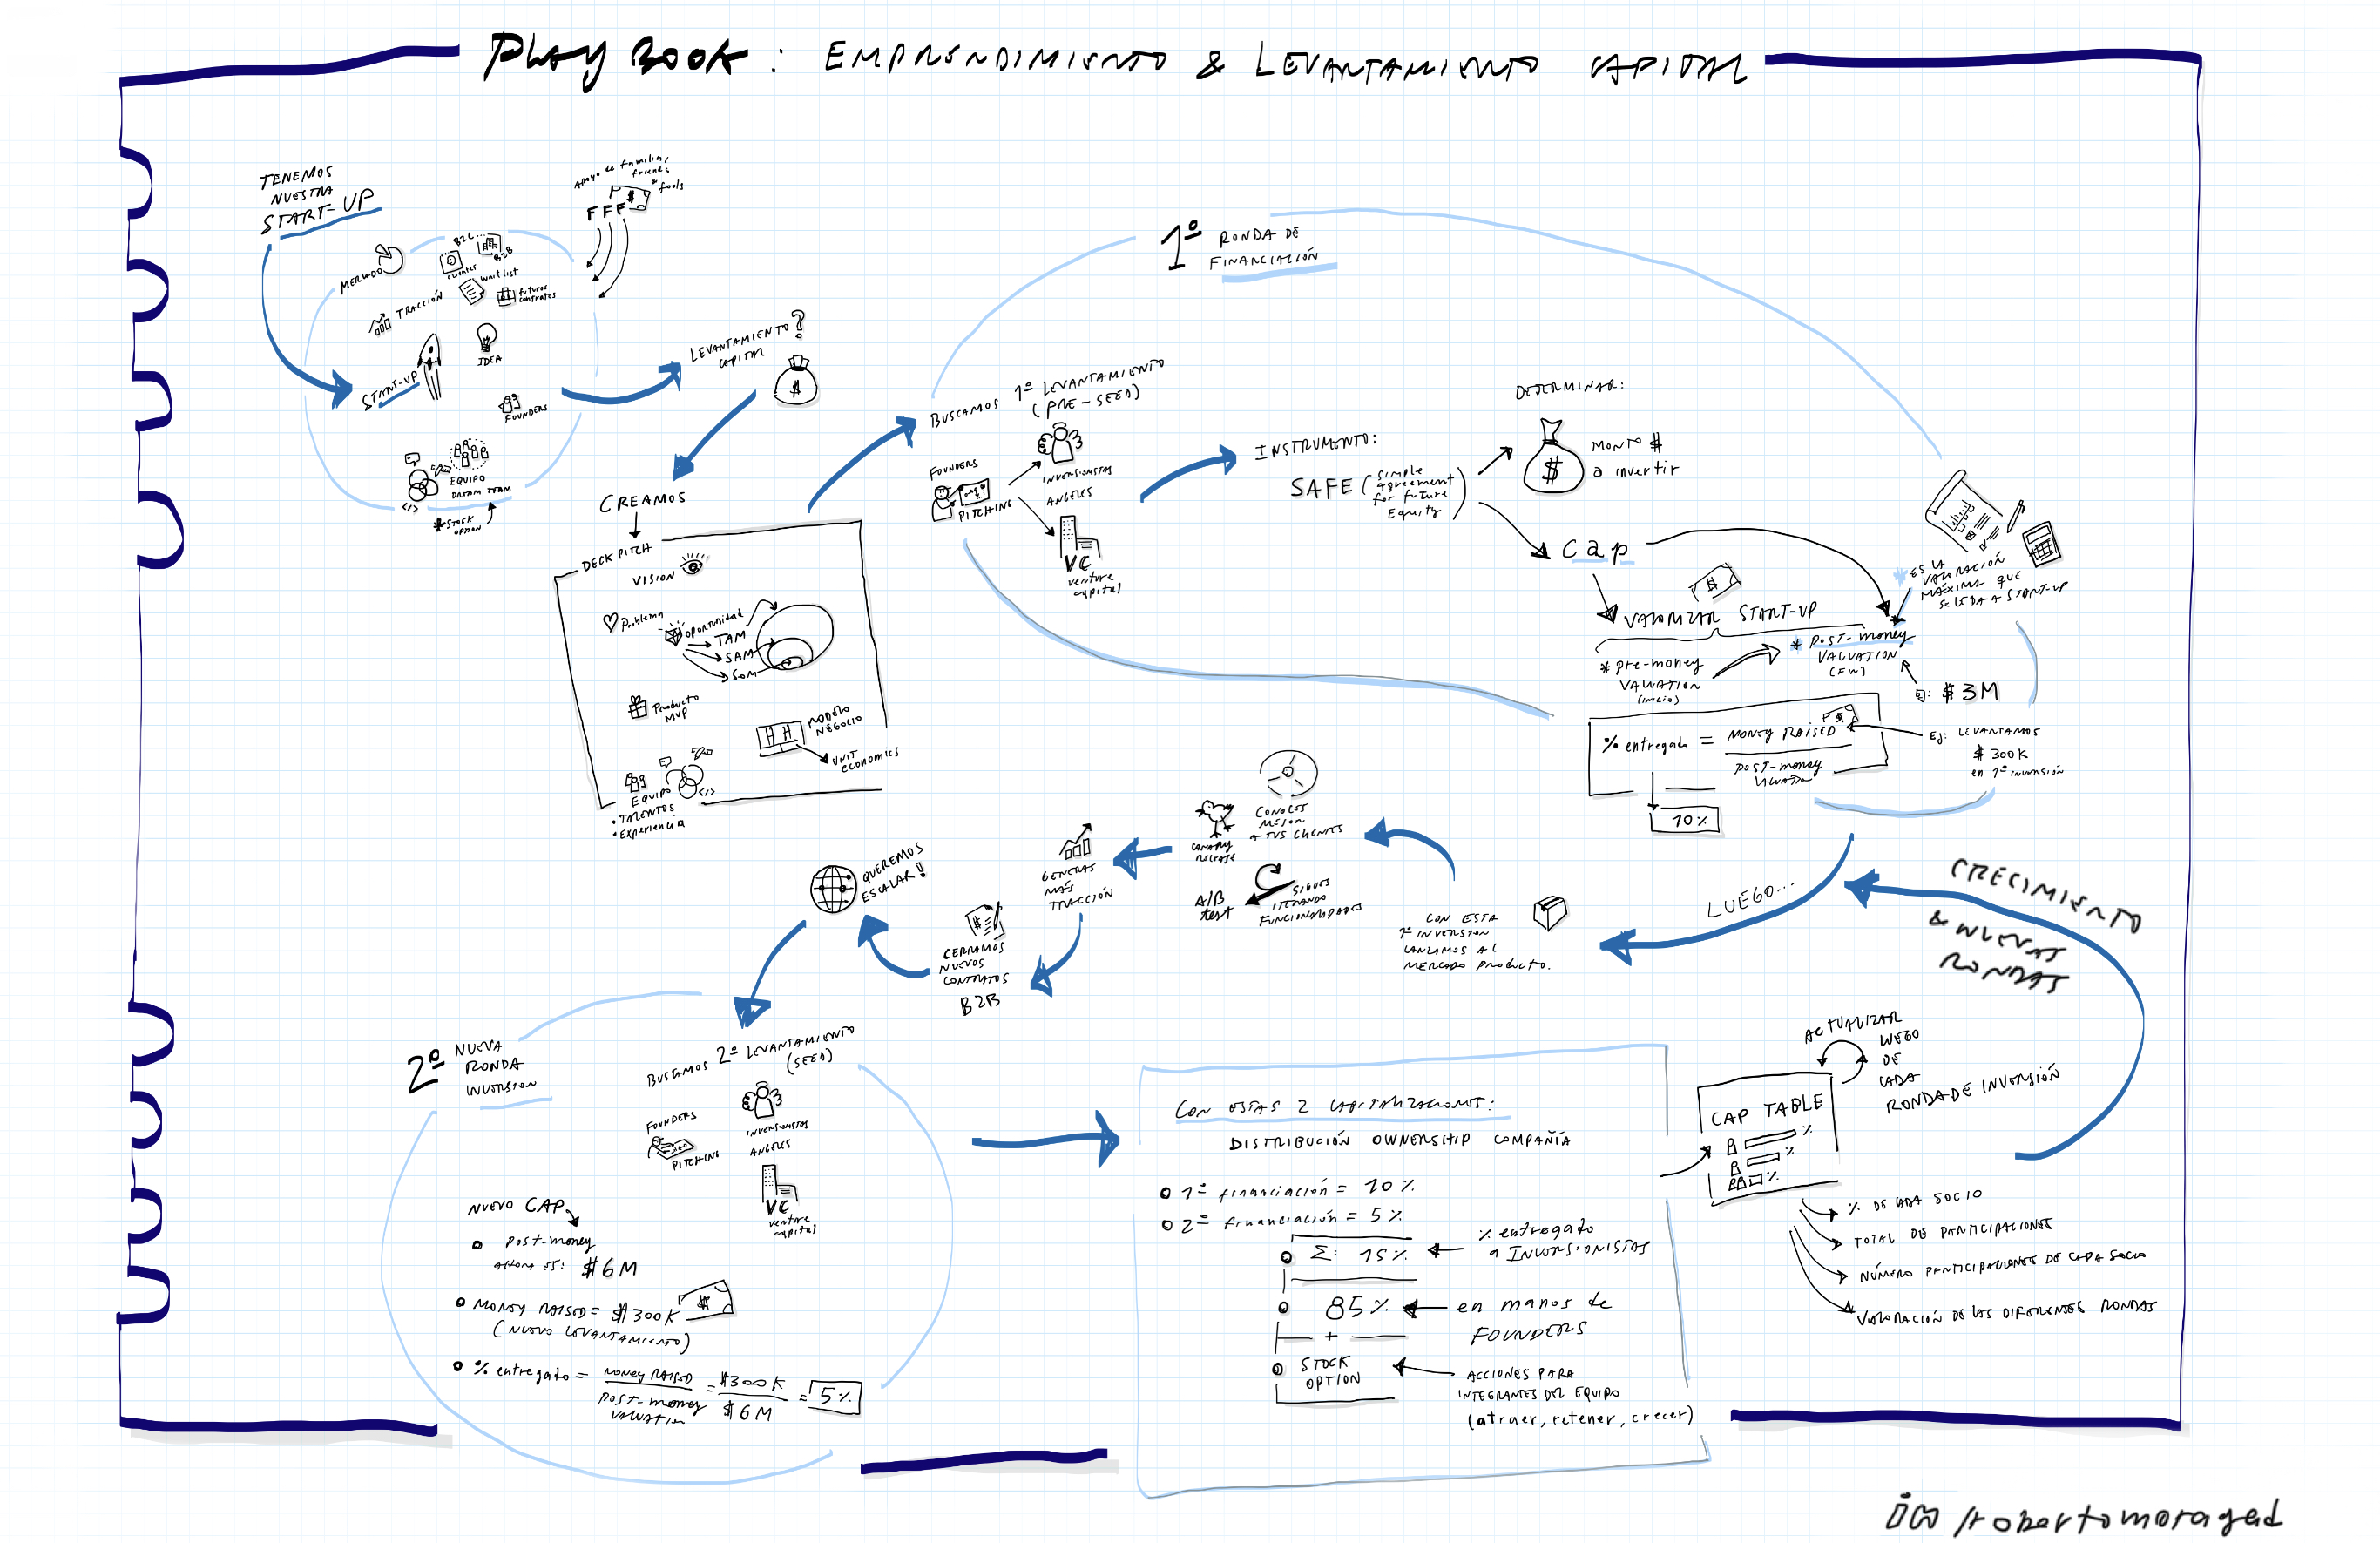 PLAY BOOK: EMPRENDIMIENTO & LEVANTAMIENTO CAPITAL
TENEMOS
NUESTRA
START-UP
Apoyo de familia,
friends
& fools
FFF
$
MERCADO
B2C...
B2B
clientes
waitlist
futuros
contratos
TRACCIÓN
IDEA
START-UP
FOUNDERS
EQUIPO
DREAM TEAM
</>
* STOCK
OPTION
LEVANTAMIENTO?
CAPITAL
$
CREAMOS
DECK PITCH
VISION
Problema
oportunidad
TAM
SAM
SOM
Producto
MVP
MODELO
NEGOCIO
UNIT
economics
EQUIPO
</>
• TALENTOS
• Experiencia
1º RONDA DE
FINANCIACIÓN
BUSCAMOS 1º LEVANTAMIENTO
(PRE-SEED)
FOUNDERS
PITCHING
INVERSIONISTAS
ANGELES
VC
venture
capital
INSTRUMENTO:
SAFE (Simple
Agreement
for future
Equity)
DETERMINAR:
$
MONTO $
a invertir
cap
VALORIZAR START-UP
* pre-money
VALUATION
(INICIO)
* POST-money
VALUATION
(FIN)
* ES LA
VALORACIÓN
MÁXIMA QUE
SE LE DA A START-UP
EJ: $3M
% entregado = MONEY RAISED
POST-money
VALUATION
$
10%
EJ: LEVANTAMOS
$300K
en 1ª INVERSIÓN
LUEGO...
CON ESTA
1ª INVERSION
LANZAMOS AL
MERCADO PRODUCTO.
CONOCES
MEJOR
A TUS CLIENTES
CANARY
RELEASE
A/B
test
SIGUES
ITERANDO
FUNCIONALIDADES
GENERAS
MÁS
TRACCIÓN
CERRAMOS
NUEVOS
CONTRATOS
B2B
QUEREMOS
ESCALAR!
2º NUEVA
RONDA
INVERSION
BUSCAMOS 2º LEVANTAMIENTO
(SEED)
FOUNDERS
PITCHING
INVERSIONISTAS
ANGELES
VC
venture
capital
NUEVO CAP
POST-money
AHORA ES: $6M
MONEY RAISED = $300K
$
(NUEVO LEVANTAMIENTO)
% entregado = MONEY RAISED
POST-money
VALUATION
= $300K
$6M
= 5%
CON ESTAS 2 CAPITALIZACIONES:
DISTRIBUCIÓN OWNERSHIP COMPAÑÍA
1ª financiación = 10%
2ª financiación = 5%
Σ: 15%
% entregado
a INVERSIONISTAS
85%
en manos de
FOUNDERS
+
STOCK
OPTION
ACCIONES PARA
INTEGRANTES DEL EQUIPO
(atraer, retener, crecer)
CAP TABLE
%
%
%
ACTUALIZAR
LUEGO
DE
CADA
RONDA DE INVERSIÓN
% DE CADA SOCIO
TOTAL DE PARTICIPACIONES
NÚMERO PARTICIPACIONES DE CADA SOCIO
VALORACIÓN DE LAS DIFERENTES RONDAS
CRECIMIENTO
& NUEVAS
RONDAS
in /robertomoraged